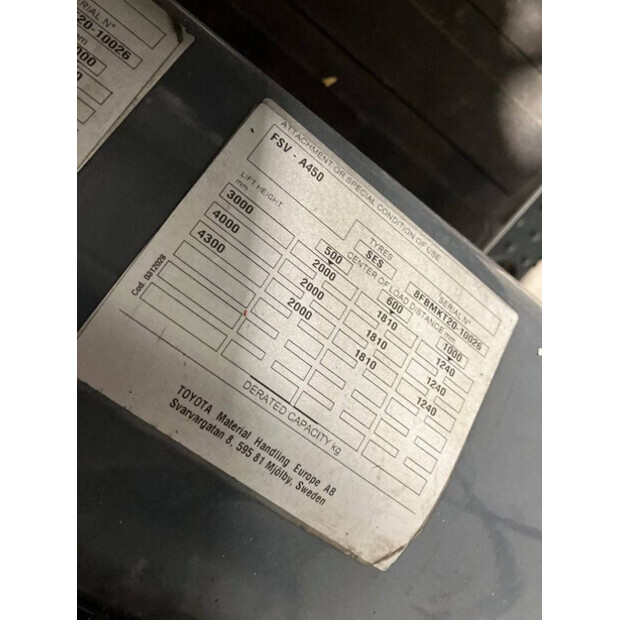 SERIAL N°
20-10026
000
ATTACHMENT OR SPECIAL CONDITION OF USE
FSV - A450
TYRES
SERIAL N°
SES
8FBMKT20-10026
LIFT HEIGHT
mm
CENTER OF LOAD DISTANCE mm
500 600 1000
3000 2000 1810 1240
4000 2000 1810 1240
4300 2000 1810 1240
DERATED CAPACITY kg
Cod. 0312028
TOYOTA Material Handling Europe AB
Svarvargatan 8, 595 81 Mjölby, Sweden